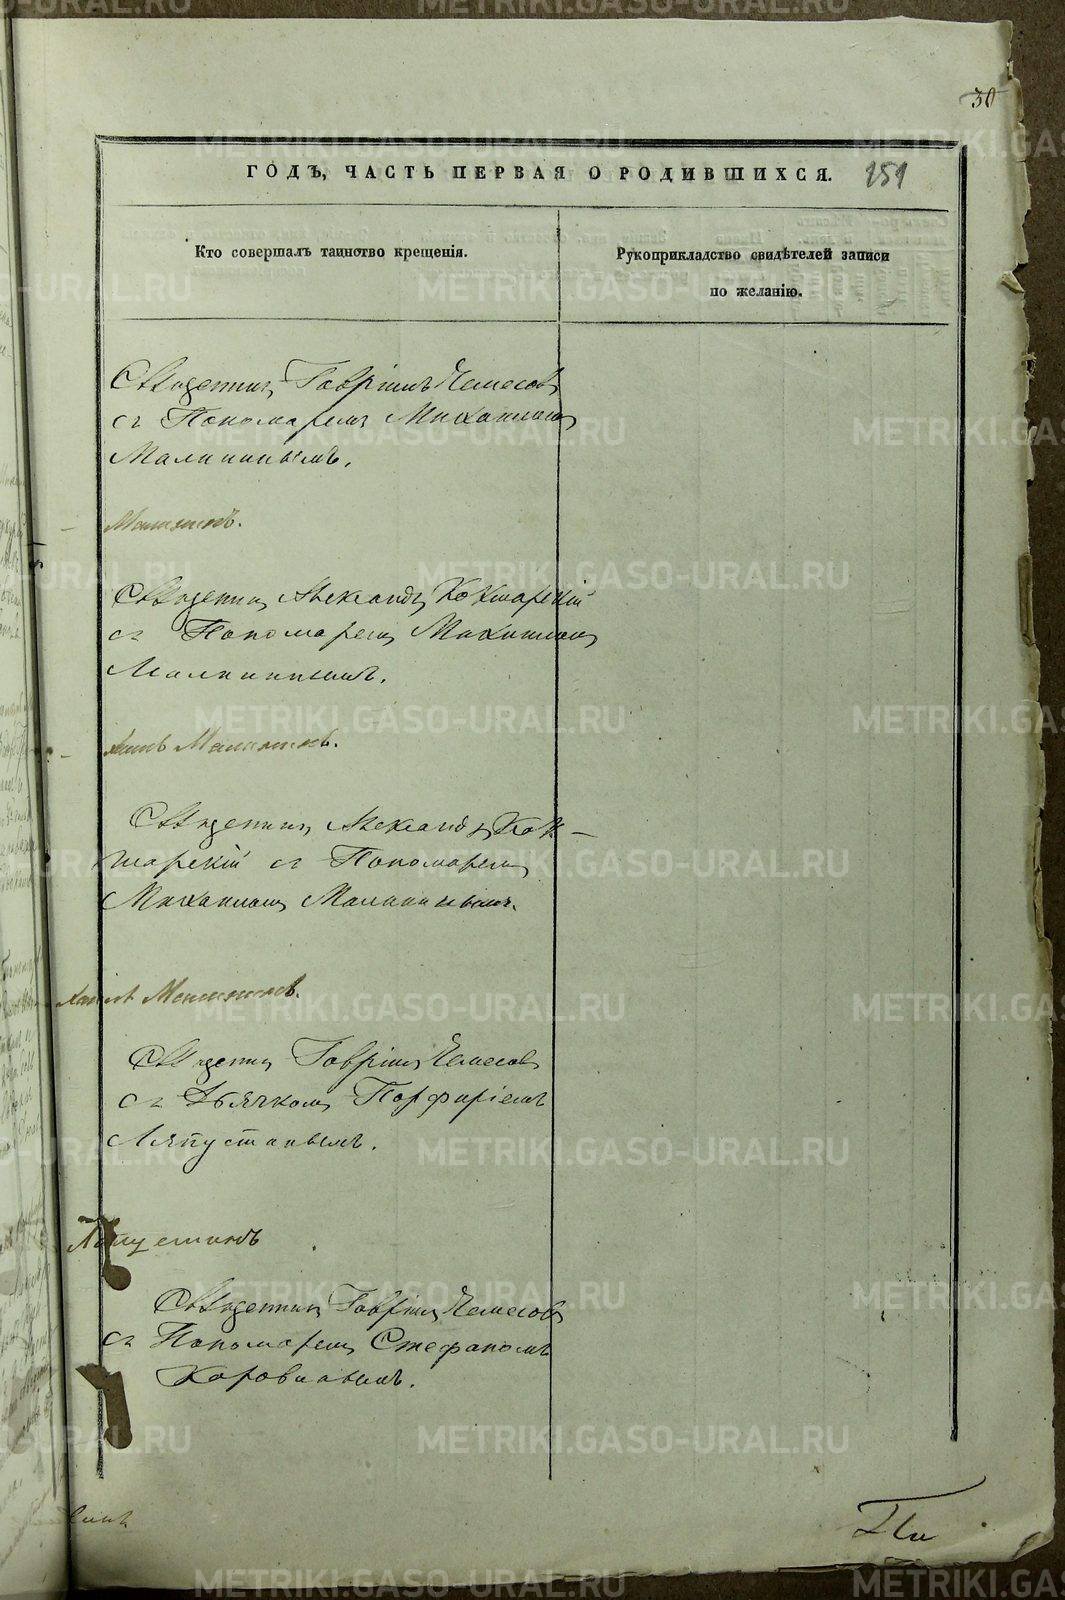 30
ГОДЪ, ЧАСТЬ ПЕРВАЯ О РОДИВШИХСЯ. 151
Кто совершалъ таинство крещенія.
Рукоприкладство свидѣтелей записи
по желанію.
Священникъ Гавріилъ Чемесовъ
съ Пономаремъ Михаиломъ
Малининымъ.
Священникъ Александръ Кокшарскій
съ Пономаремъ Михаиломъ
Малининымъ.
Священникъ Александръ Кок-
шарскій съ Пономаремъ
Михаиломъ Малининымъ.
Священникъ Гавріилъ Чемесовъ
съ Дьячкомъ Порфиріемъ
Ляпустинымъ.
Священникъ Гавріилъ Чемесовъ
съ Пономаремъ Стефаномъ
Коровинымъ.
METRIKI.GASO-URAL.RU